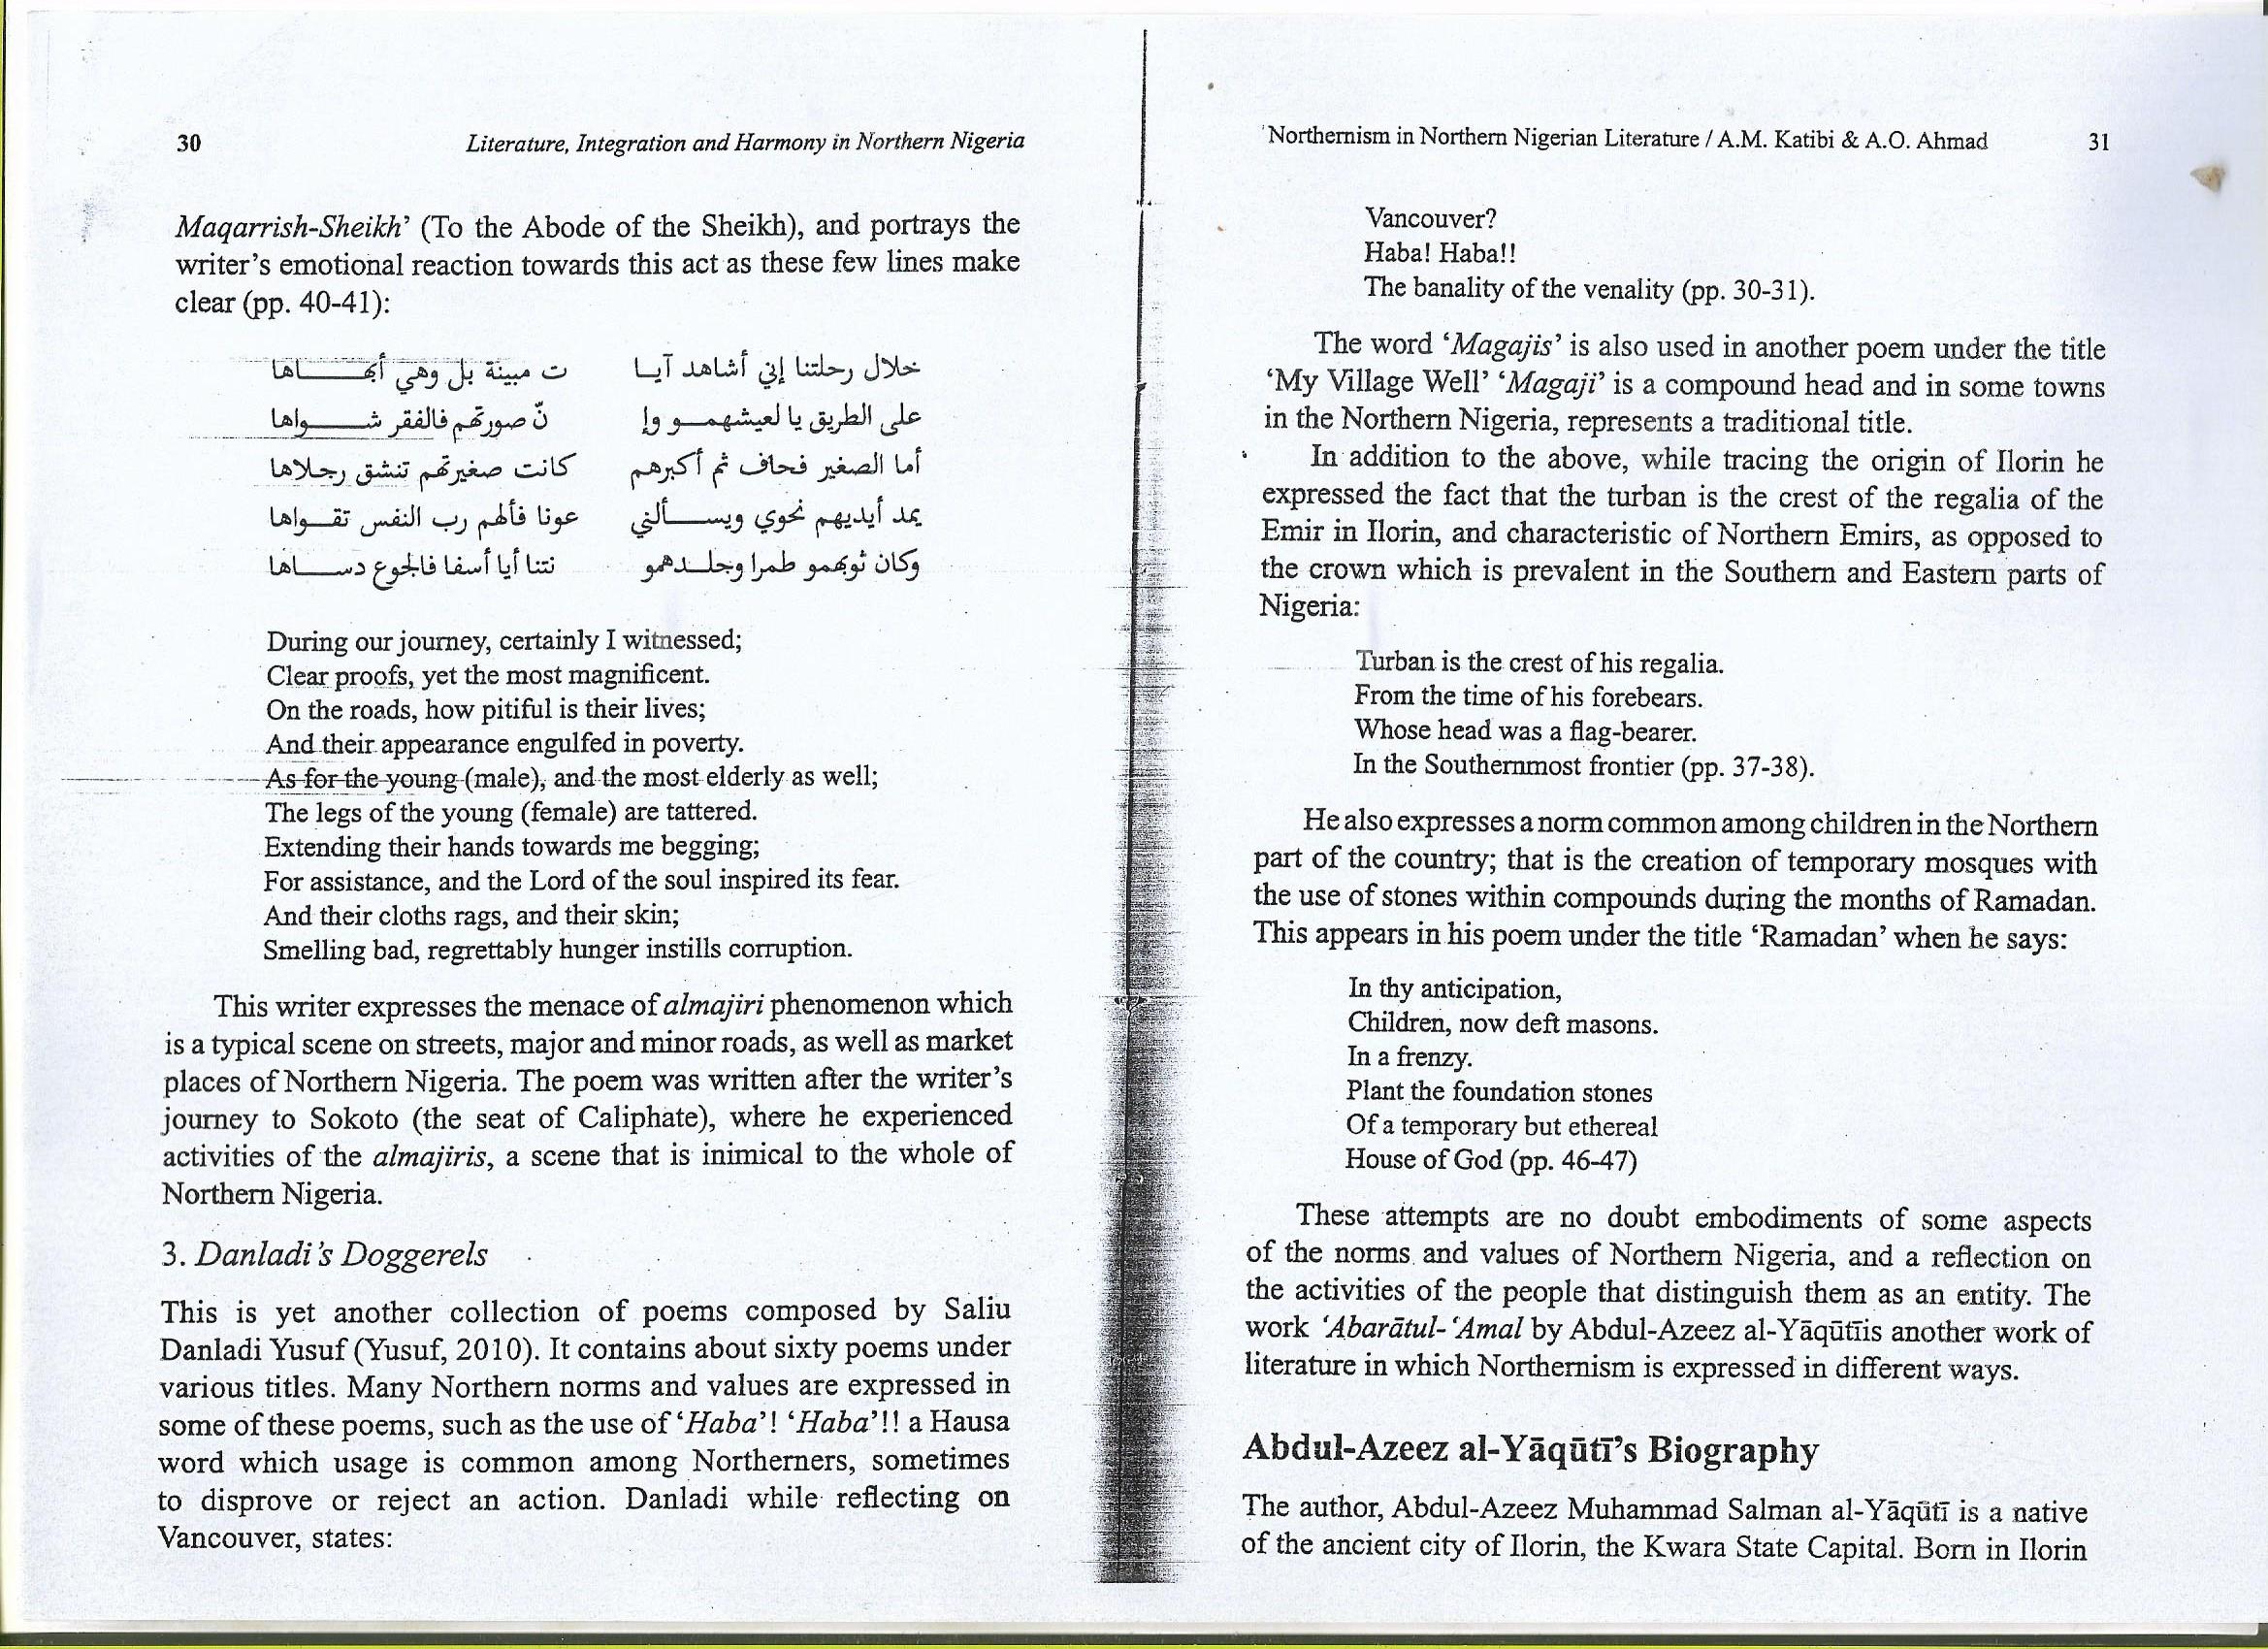 30 Literature, Integration and Harmony in Northern Nigeria
Maqarrish-Sheikh’ (To the Abode of the Sheikh), and portrays the
writer’s emotional reaction towards this act as these few lines make
clear (pp. 40-41):
خلال رحلتنا إني أشاهد آيـا ت مبينة بل وهي أبهـــــاها
على الطريق يا لعيشهمـــو وإ نّ صورتهم فالفقر شـــــواها
أما الصغير فحاف ثم أكبرهم كانت صغيرتهم تنشق رجـلاها
يمد أيديهم نحوي ويســـألني عونا فألهم رب النفس تقـــواها
وكان ثوبهمو طمرا وجلـــدهمو نتنا أيا أسفا فالجوع دســـاها
During our journey, certainly I witnessed;
Clear proofs, yet the most magnificent.
On the roads, how pitiful is their lives;
And their appearance engulfed in poverty.
As for the young (male), and the most elderly as well;
The legs of the young (female) are tattered.
Extending their hands towards me begging;
For assistance, and the Lord of the soul inspired its fear.
And their cloths rags, and their skin;
Smelling bad, regrettably hunger instills corruption.
This writer expresses the menace of almajiri phenomenon which
is a typical scene on streets, major and minor roads, as well as market
places of Northern Nigeria. The poem was written after the writer’s
journey to Sokoto (the seat of Caliphate), where he experienced
activities of the almajiris, a scene that is inimical to the whole of
Northern Nigeria.
3. Danladi’s Doggerels
This is yet another collection of poems composed by Saliu
Danladi Yusuf (Yusuf, 2010). It contains about sixty poems under
various titles. Many Northern norms and values are expressed in
some of these poems, such as the use of ‘Haba’! ‘Haba’!! a Hausa
word which usage is common among Northerners, sometimes
to disprove or reject an action. Danladi while reflecting on
Vancouver, states:
Northernism in Northern Nigerian Literature / A.M. Katibi & A.O. Ahmad 31
Vancouver?
Haba! Haba!!
The banality of the venality (pp. 30-31).
The word ‘Magajis’ is also used in another poem under the title
‘My Village Well’ ‘Magaji’ is a compound head and in some towns
in the Northern Nigeria, represents a traditional title.
In addition to the above, while tracing the origin of Ilorin he
expressed the fact that the turban is the crest of the regalia of the
Emir in Ilorin, and characteristic of Northern Emirs, as opposed to
the crown which is prevalent in the Southern and Eastern parts of
Nigeria:
Turban is the crest of his regalia.
From the time of his forebears.
Whose head was a flag-bearer.
In the Southernmost frontier (pp. 37-38).
He also expresses a norm common among children in the Northern
part of the country; that is the creation of temporary mosques with
the use of stones within compounds during the months of Ramadan.
This appears in his poem under the title ‘Ramadan’ when he says:
In thy anticipation,
Children, now deft masons.
In a frenzy.
Plant the foundation stones
Of a temporary but ethereal
House of God (pp. 46-47)
These attempts are no doubt embodiments of some aspects
of the norms and values of Northern Nigeria, and a reflection on
the activities of the people that distinguish them as an entity. The
work ‘Abarātul-‘Amal by Abdul-Azeez al-Yāqūtīis another work of
literature in which Northernism is expressed in different ways.
Abdul-Azeez al-Yāqūtī’s Biography
The author, Abdul-Azeez Muhammad Salman al-Yāqūtī is a native
of the ancient city of Ilorin, the Kwara State Capital. Born in Ilorin